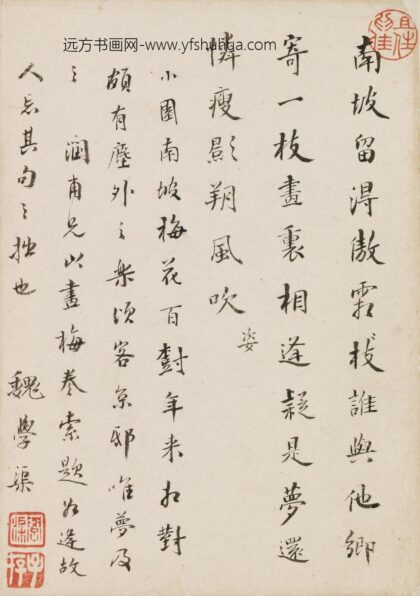 远方书画网--www.yfshuhua.com
南坡留得傲霜枝誰與他鄉
寄一枝畫裏相逢疑是夢還
憐瘦影朔風吹
姿
小園南坡梅花百樹年来相對
頗有塵外之樂須客京邸唯夢及
之潤甫兄以畫梅卷索題如逢故
人忘其句之拙也
魏學渠